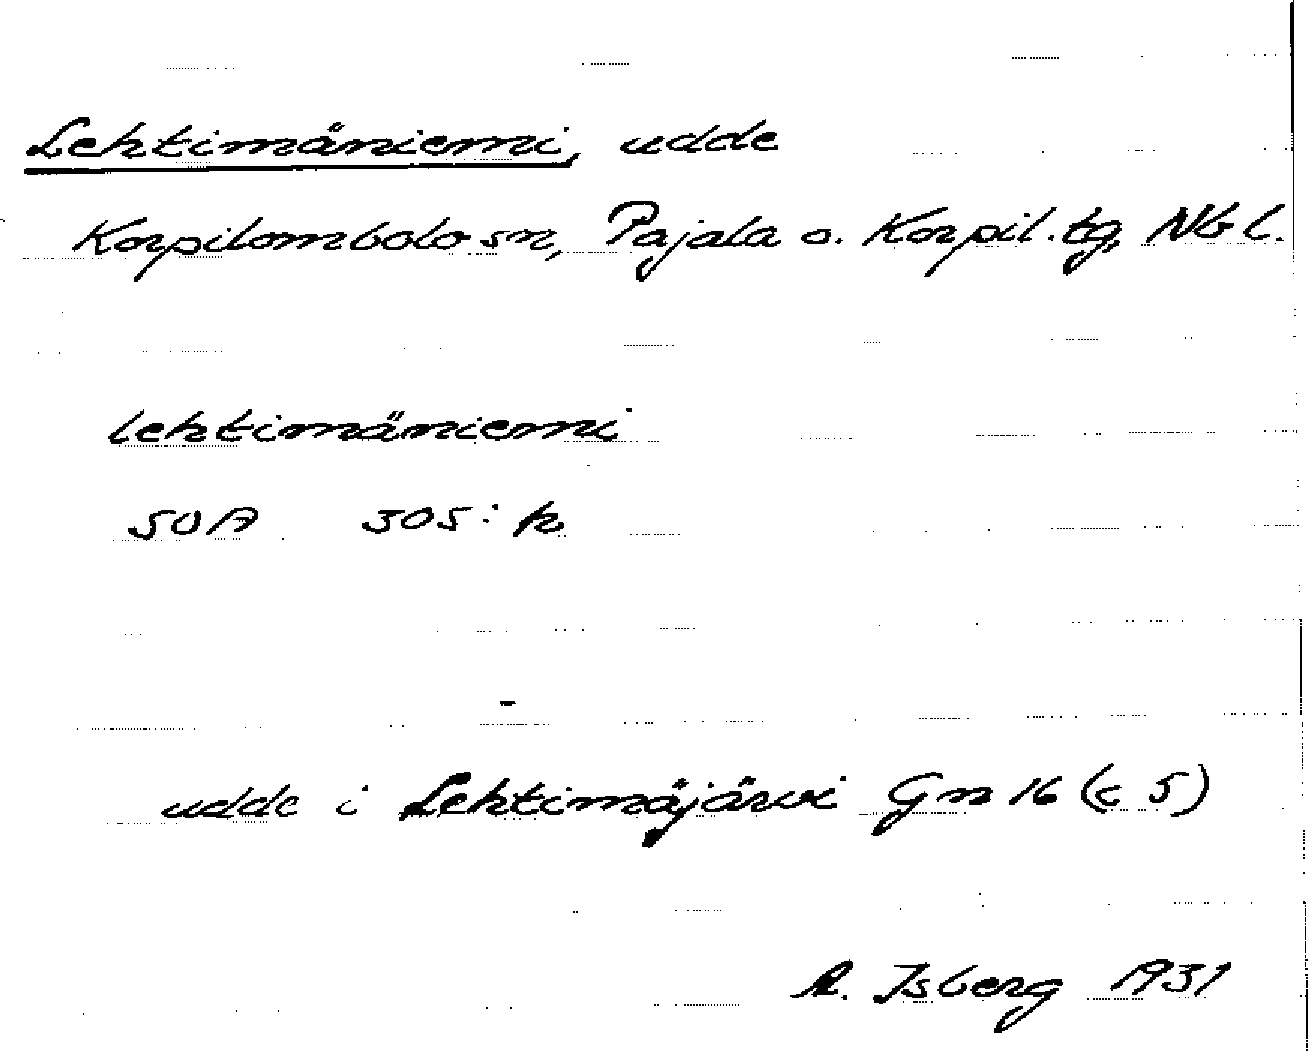 Lehtimäniemi, udde
Korpilombolo sn, Pajala o. Korpil. tg, Nb l.
lehtimäniemi
SOA 305: k
udde i Lehtimäjärvi Gn 16 (c 5)
A. Isberg 1931